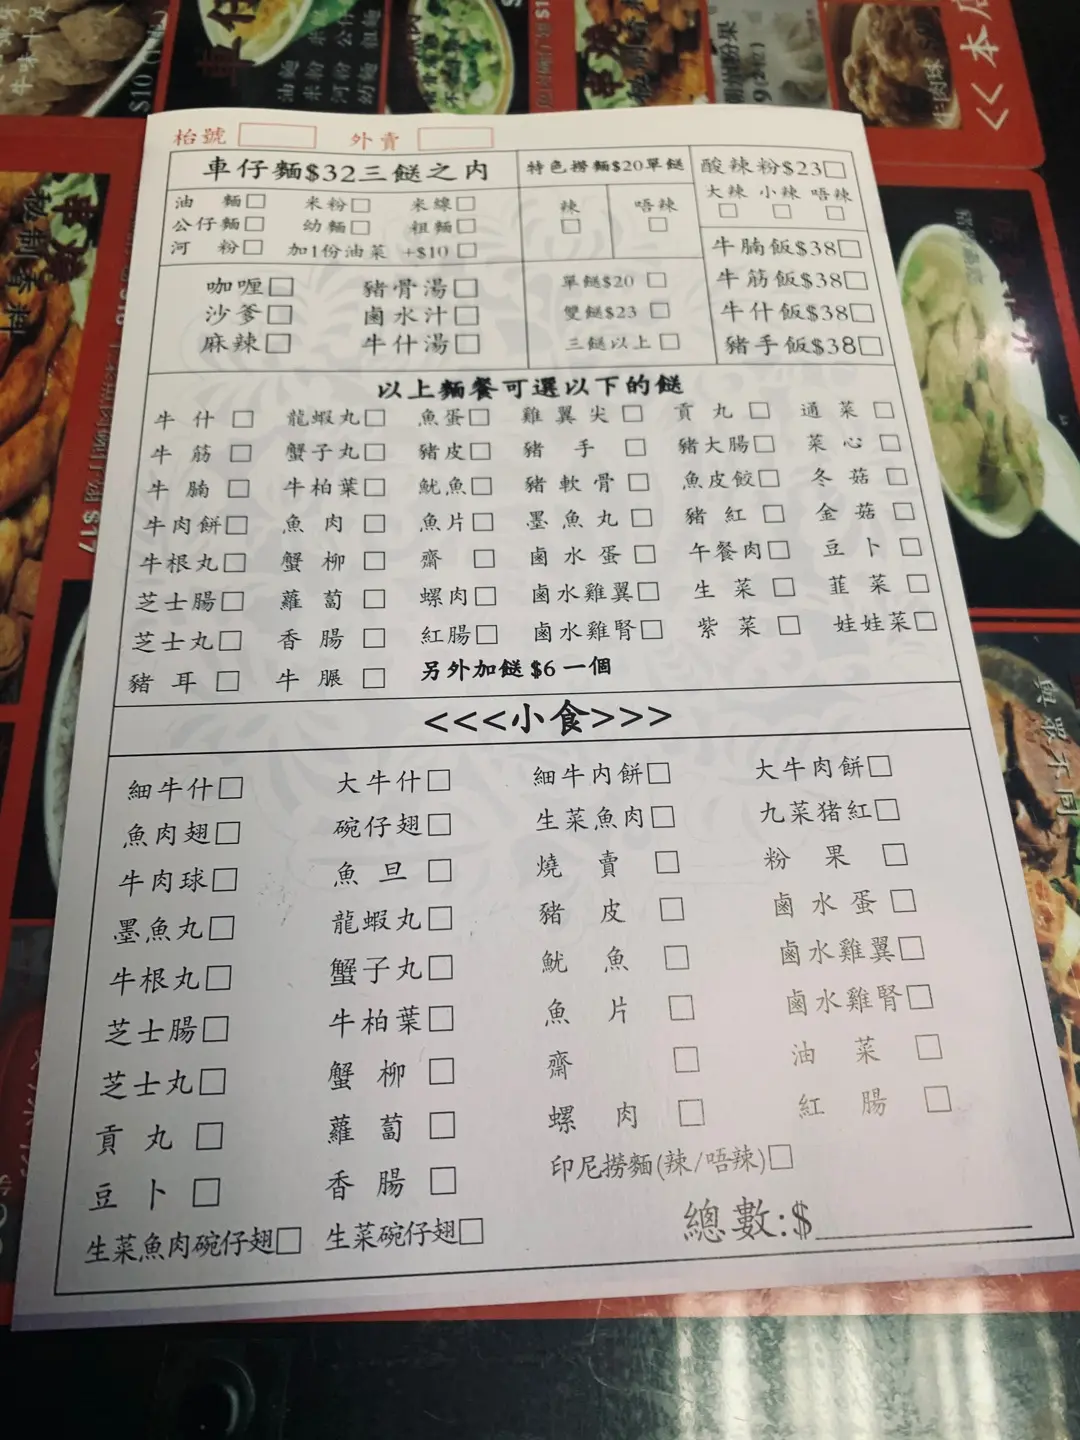 枱號 外賣
車仔麵$32三餸之內
油 麵 米粉 米線
公仔麵 幼麵 粗麵
河 粉 加1份油菜 +$10
特色撈麵$20單餸
辣 唔辣
酸辣粉$23
大辣 小辣 唔辣
咖喱 豬骨湯
沙爹 鹵水汁
麻辣 牛什湯
單餸$20
雙餸$23
三餸以上
牛腩飯$38
牛筋飯$38
牛什飯$38
豬手飯$38
以上麵餐可選以下的餸
牛什 龍蝦丸 魚蛋 雞翼尖 貢丸 通菜
牛筋 蟹子丸 豬皮 豬手 豬大腸 菜心
牛腩 牛柏葉 魷魚 豬軟骨 魚皮餃 冬菇
牛肉餅 魚肉 魚片 墨魚丸 豬紅 金菇
牛根丸 蟹柳 齋 鹵水蛋 午餐肉 豆卜
芝士腸 蘿蔔 螺肉 鹵水雞翼 生菜 韮菜
芝士丸 香腸 紅腸 鹵水雞腎 紫菜 娃娃菜
豬耳 牛脹 另外加餸$6一個
<<<小食>>>
細牛什 大牛什 細牛内餅 大牛肉餅
魚肉翅 碗仔翅 生菜魚肉 九菜猪紅
牛肉球 魚旦 燒賣 粉果
墨魚丸 龍蝦丸 豬皮 鹵水蛋
牛根丸 蟹子丸 魷魚 鹵水雞翼
芝士腸 牛柏葉 魚片 鹵水雞腎
芝士丸 蟹柳 齋 油菜
貢丸 蘿蔔 螺肉 紅腸
豆卜 香腸 印尼撈麵(辣/唔辣)
生菜魚肉碗仔翅 生菜碗仔翅
總數:$